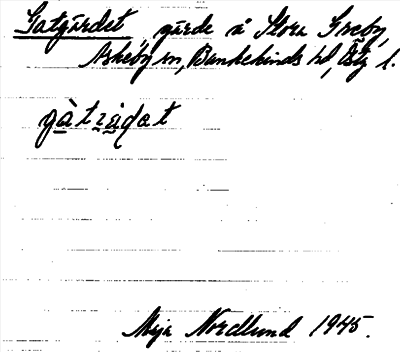 Gatgärdet, gärde å Stora Greby,
Askeby sn, Bankekinds hd, Östg l.
gàtzịdat
Maja Nordlund 1945.